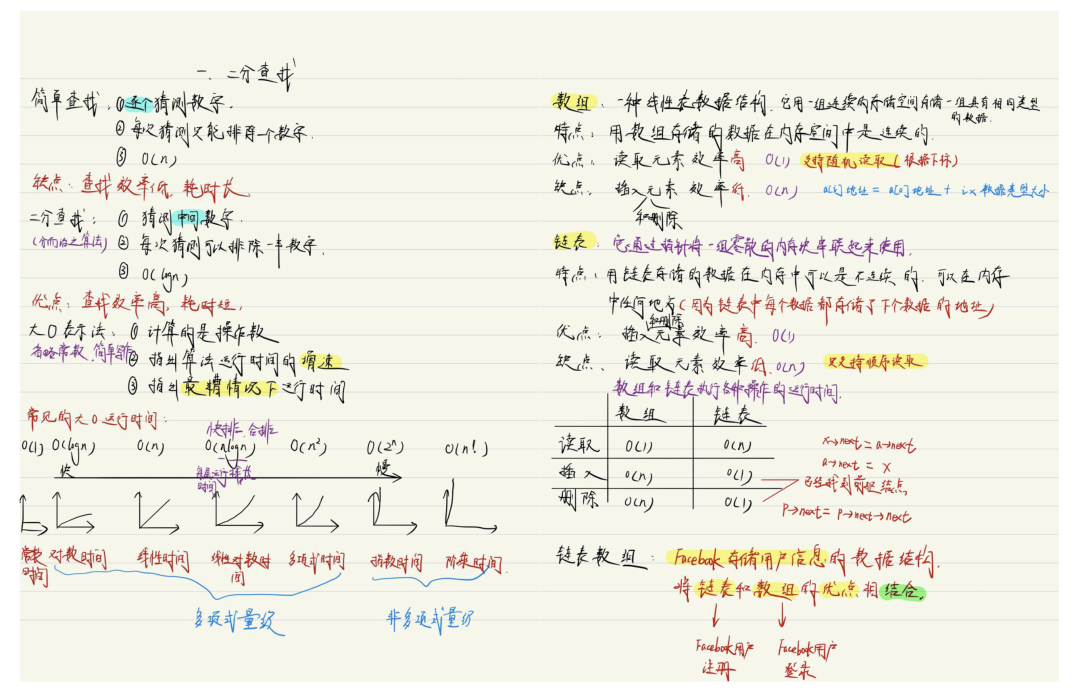 一、二分查找
简单查找：①逐个猜测数字.
② 每次猜测只能排除一个数字.
③ O(n)
缺点：查找效率低，耗时长
二分查找： ① 猜测中间数字.
(分而治之算法) ② 每次猜测可以排除一半数字.
③ O(logn)
优点：查找效率高，耗时短，
大O表示法： ① 计算的是操作数
省略常数，简单 ② 指出算法运行时间的增速
③ 指出最糟情况下运行时间
常见的大O运行时间：
快排、合排
O(1) O(logn) O(n) O(nlogn) O(n²) O(2ⁿ) O(n!)
快 慢
运行 时间
常数时间 对数时间 线性时间 线性对数时间 多项式时间 指数时间 阶乘时间.
多项式量级 非多项式量级
数组：一种线性表数据结构.它用一组连续的存储空间存储一组具有相同类型的数据.
特点：用数组存储的数据在内存空间中是连续的.
优点：读取元素效率高 O(1) 支持随机读取(根据下标)
缺点：插入元素效率低. O(n) a[i]地址 = a[0]地址 + i×数据类型大小
和删除
链表：它通过指针将一组零散的内存块串联起来使用.
特点：用链表存储的数据在内存中可以是不连续的，可以在内存
中任何地点(因为链表中每个数据都存储了下个数据的地址)
和删除
优点：插入元素效率高. O(1)
缺点：读取元素效率低. O(n) 只支持顺序读取
数组和链表执行各种操作的运行时间.
数组 链表
读取 O(1) O(n)
插入 O(n) O(1)
删除 O(n) O(1)
x→next = a→next
a→next = x
已经找到前驱结点
p→next = p→next→next
链表数组：Facebook存储用户信息的数据结构.
将链表和数组的优点相结合.
Facebook用户注册 Facebook用户登录